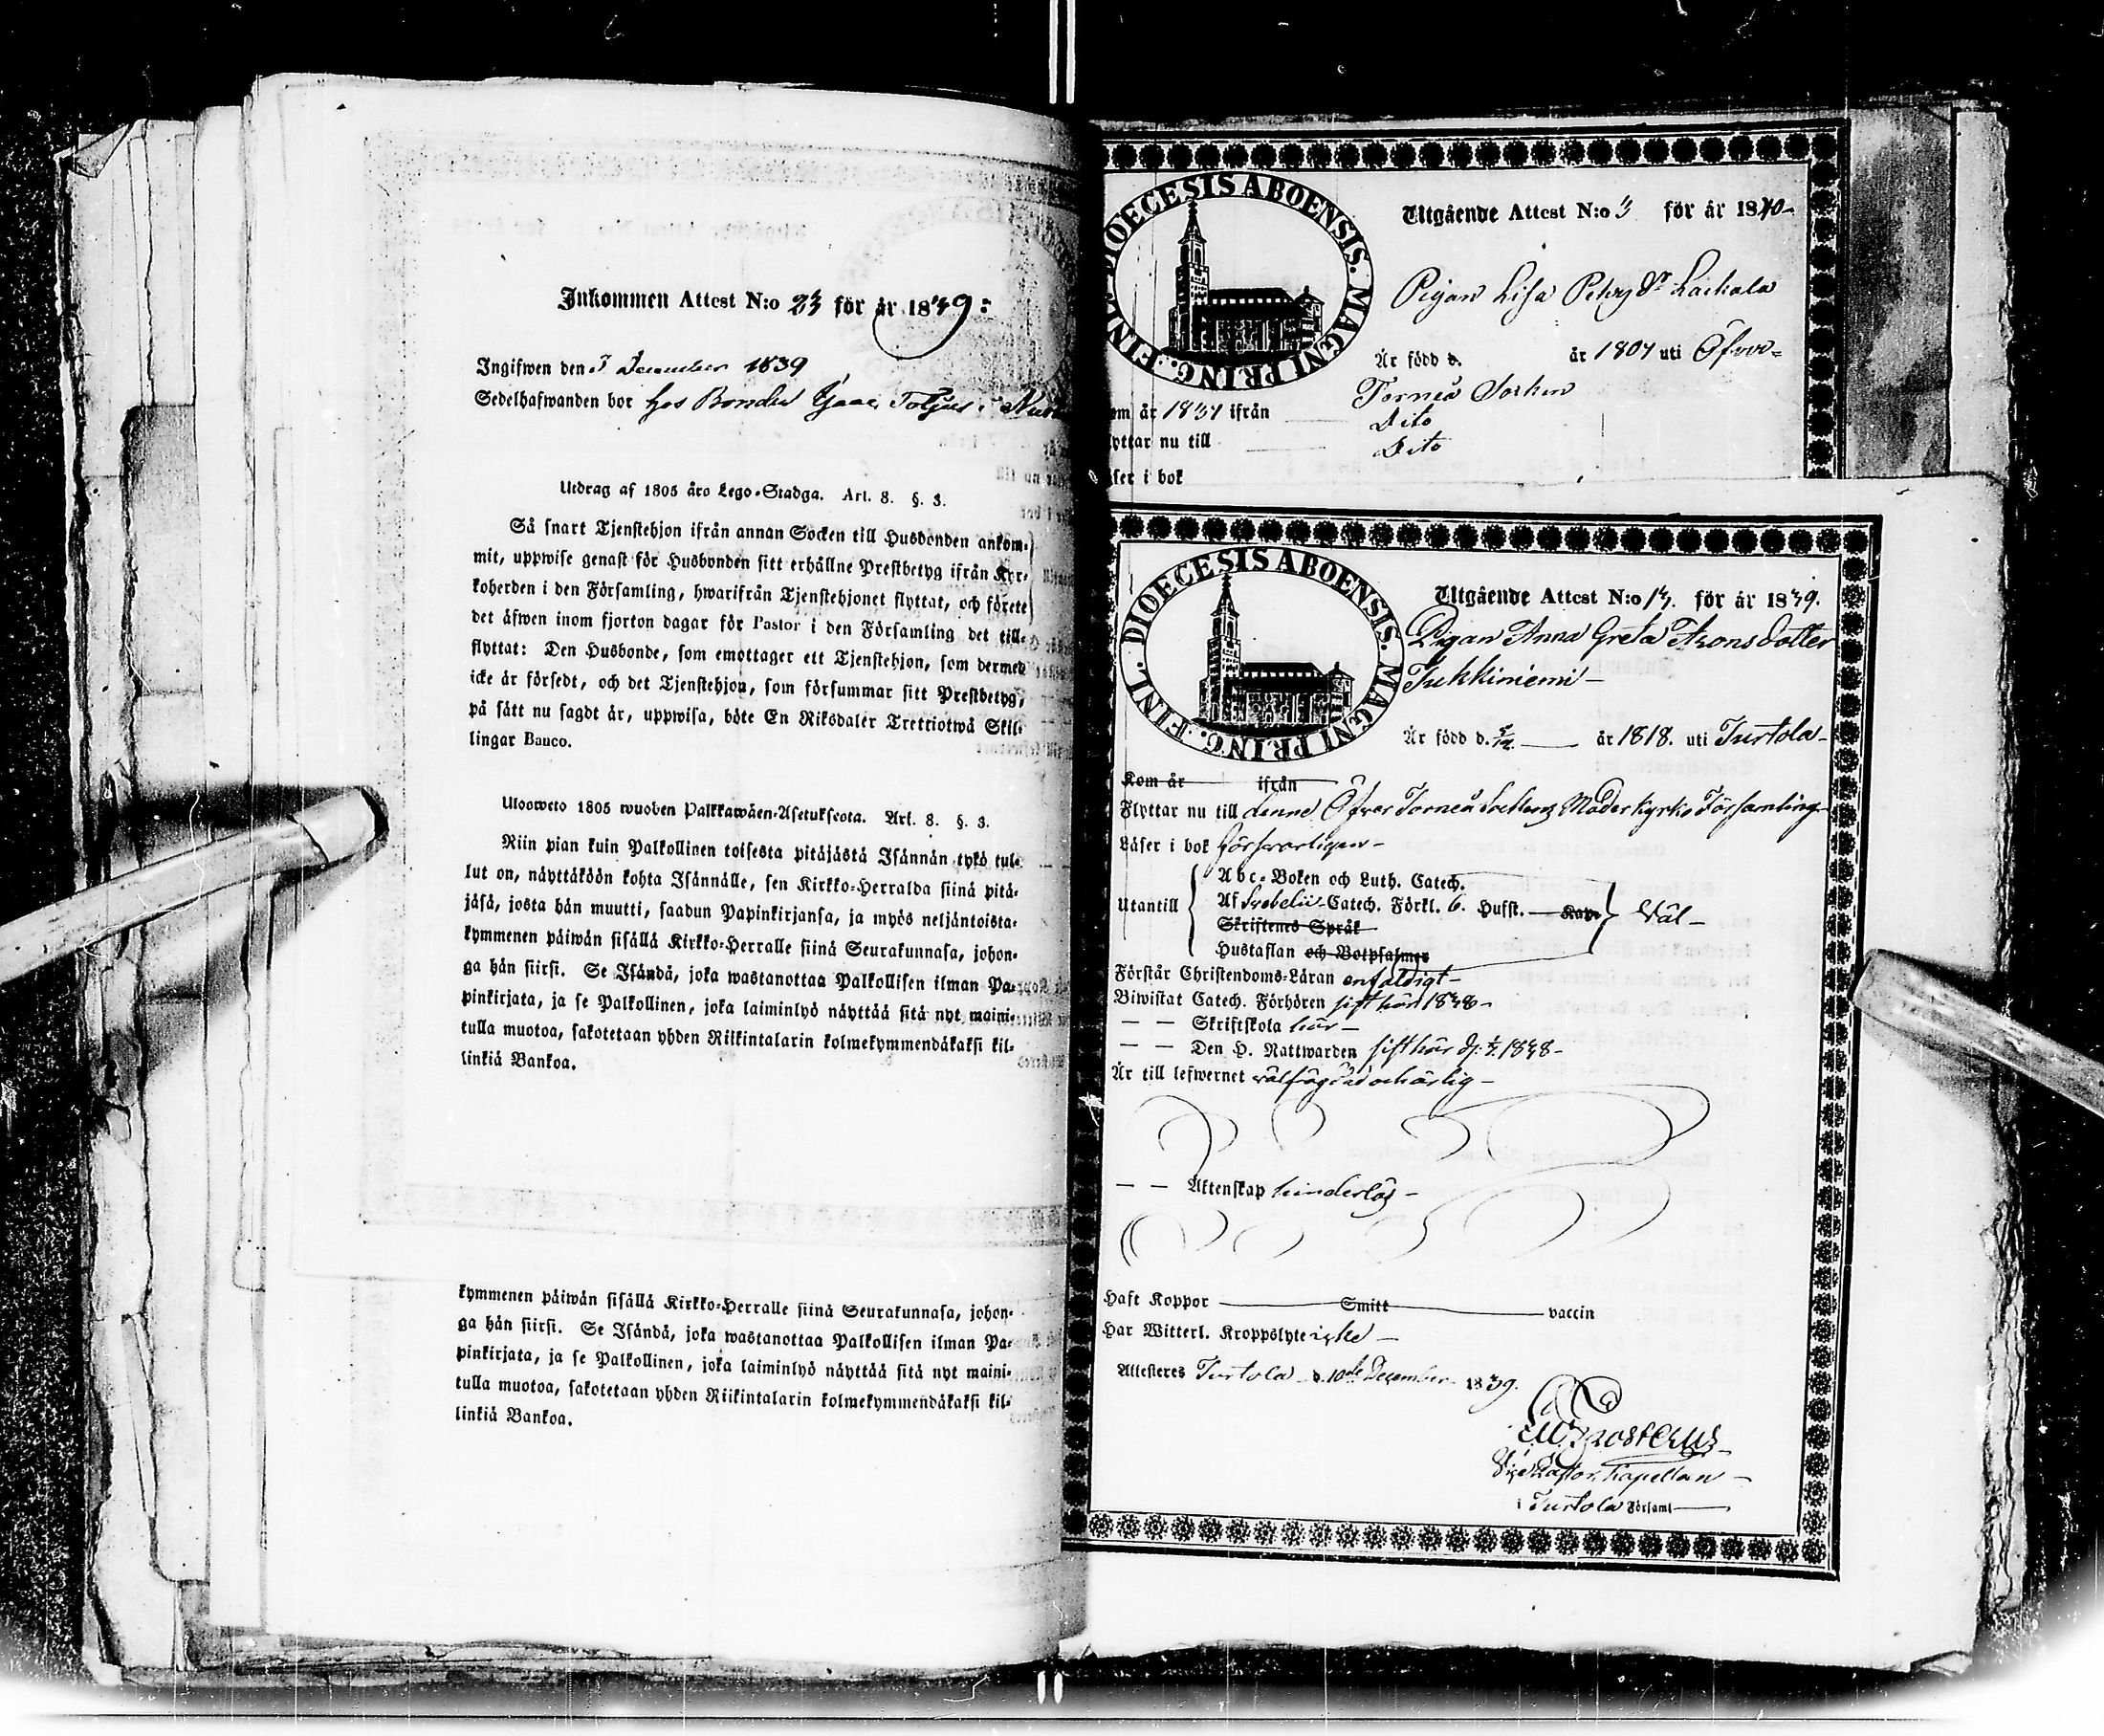 Inkommen Attest N:o 23 för år 1839:
Ingifwen den December 1839
Sedelhafwanden bor hos Bonden
Utdrag af 1805 års Lego-Stadga. Art. 8. §. 3.
Så snart Tjenstehjon ifrån annan Socken till Husbonden ankom-
mit, uppwise genast för Husbonden sitt erhållne Prestbetyg ifrån Kyr-
koherden i den Församling, hwarifrån Tjenstehjonet flyttat, och förete
det äfwen inom fjorton dagar för Pastor i den Församling det till-
flyttat: Den Husbonde, som emottager ett Tjenstehjon, som dermed
icke är försedt, och det Tjenstehjon, som försummar sitt Prestbetyg,
på sätt nu sagdt är, uppwisa, böte En Riksdaler Trettiotwå Skil-
lingar Banco.
Uloosweto 1805 wuoden Palkkawäen-Asetuksesta. Art. 8. §. 3.
Niin pian kuin Palkollinen toisesta pitäjästä Isännän tykö tul-
lut on, näyttäköön kohta Isännälle, sen Kirkko-Herralda siinä pitä-
jäsä, josta hän muutti, saadun Papinkirjansa, ja myös neljäntoista-
kymmenen päiwän sisällä Kirkko-Herralle siinä Seurakunnasa, johon-
ga hän siirsi. Se Isändä, joka wastanottaa Palkollisen ilman Pa-
pinkirjata, ja se Palkollinen, joka laiminlyö näyttää sitä nyt maini-
tulla muotoa, sakotetaan yhden Riikintalarin kolmekymmendäkaksi kil-
linkiä Bankoa.
kymmenen päiwän sisällä Kirkko-Herralle siinä Seurakunnasa, johon-
ga hän siirsi. Se Isändä, joka wastanottaa Palkollisen ilman Pa-
pinkirjata, ja se Palkollinen, joka laiminlyö näyttää sitä nyt maini-
tulla muotoa, sakotetaan yhden Riikintalarin kolmekymmendäkaksi kil-
linkiä Bankoa.
DIOECESIS ABOENSIS. MAGNI PRING. FINL.
Utgående Attest N:o 3 för år 1840-
Pigan Lisa
Är född d. år 1807 uti Öfver=
Torneå Sochn
om år 1837 ifrån Dito
lyttar nu till Dito
äser i bok
DIOECESIS ABOENSIS. MAGNI PRING. FINL.
Utgående Attest N:o 13. för år 1839.
Pigan Anna Greta Aronsdotter
Jukkiniemi-
Är född d. år 1818. uti Turtola-
Kom år ifrån
Flyttar nu till denne Öfver Torneå Sockens Moderkyrko Församling-
Läser i bok försvarligen-
Utantill
Abc-Boken och Luth. Catech.
Af Svebelii Catech. Förkl. 6. Hufst. Kap.
Skriftenes Språk
Hustaflan och Botpsalmer
Väl-
Förstår Christendoms-Läran enfaldigt-
Biwistat Catech. Förhören sist här 1838-
— — Skriftskola här-
— — Den H. Nattwarden sist här 1838-
Är till lefwernet välfrägdad och ärlig-
— — Äktenskap hinderlös-
Haft Koppor Smitt vaccin
Har Witterl. Kroppslyte icke-
Attesteres Turtola d. 10de December 1839.
Vice Pastor, Kapellan-
i Turtola Församl